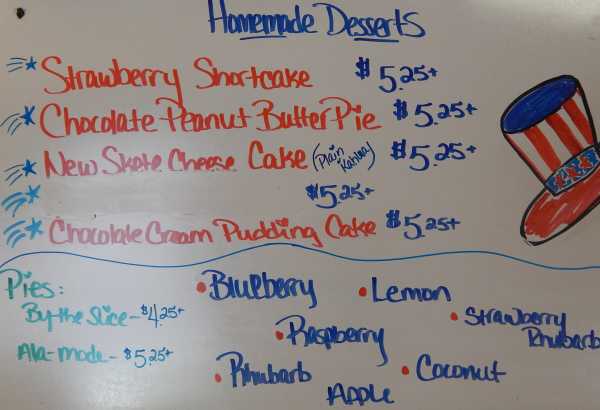 Homemade Desserts
Strawberry Shortcake $5.25+
Chocolate Peanut Butter Pie $5.25+
New Skete Cheese Cake (Plain Kahlua) $5.25+
$5.25+
Chocolate Cream Pudding Cake $5.25+
Pies:
By the Slice - $4.25+
Ala-mode - $5.25+
Blueberry
Lemon
Strawberry Rhubarb
Raspberry
Rhubarb
Coconut
Apple